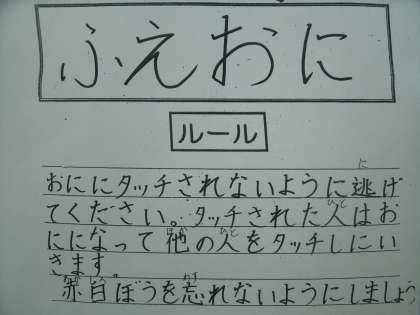 ふえおに
ルール
おににタッチされないように逃げ
てください。タッチされた人はお
にになって他の人をタッチしにい
きます。
赤白ぼうを忘れないようにしましょう